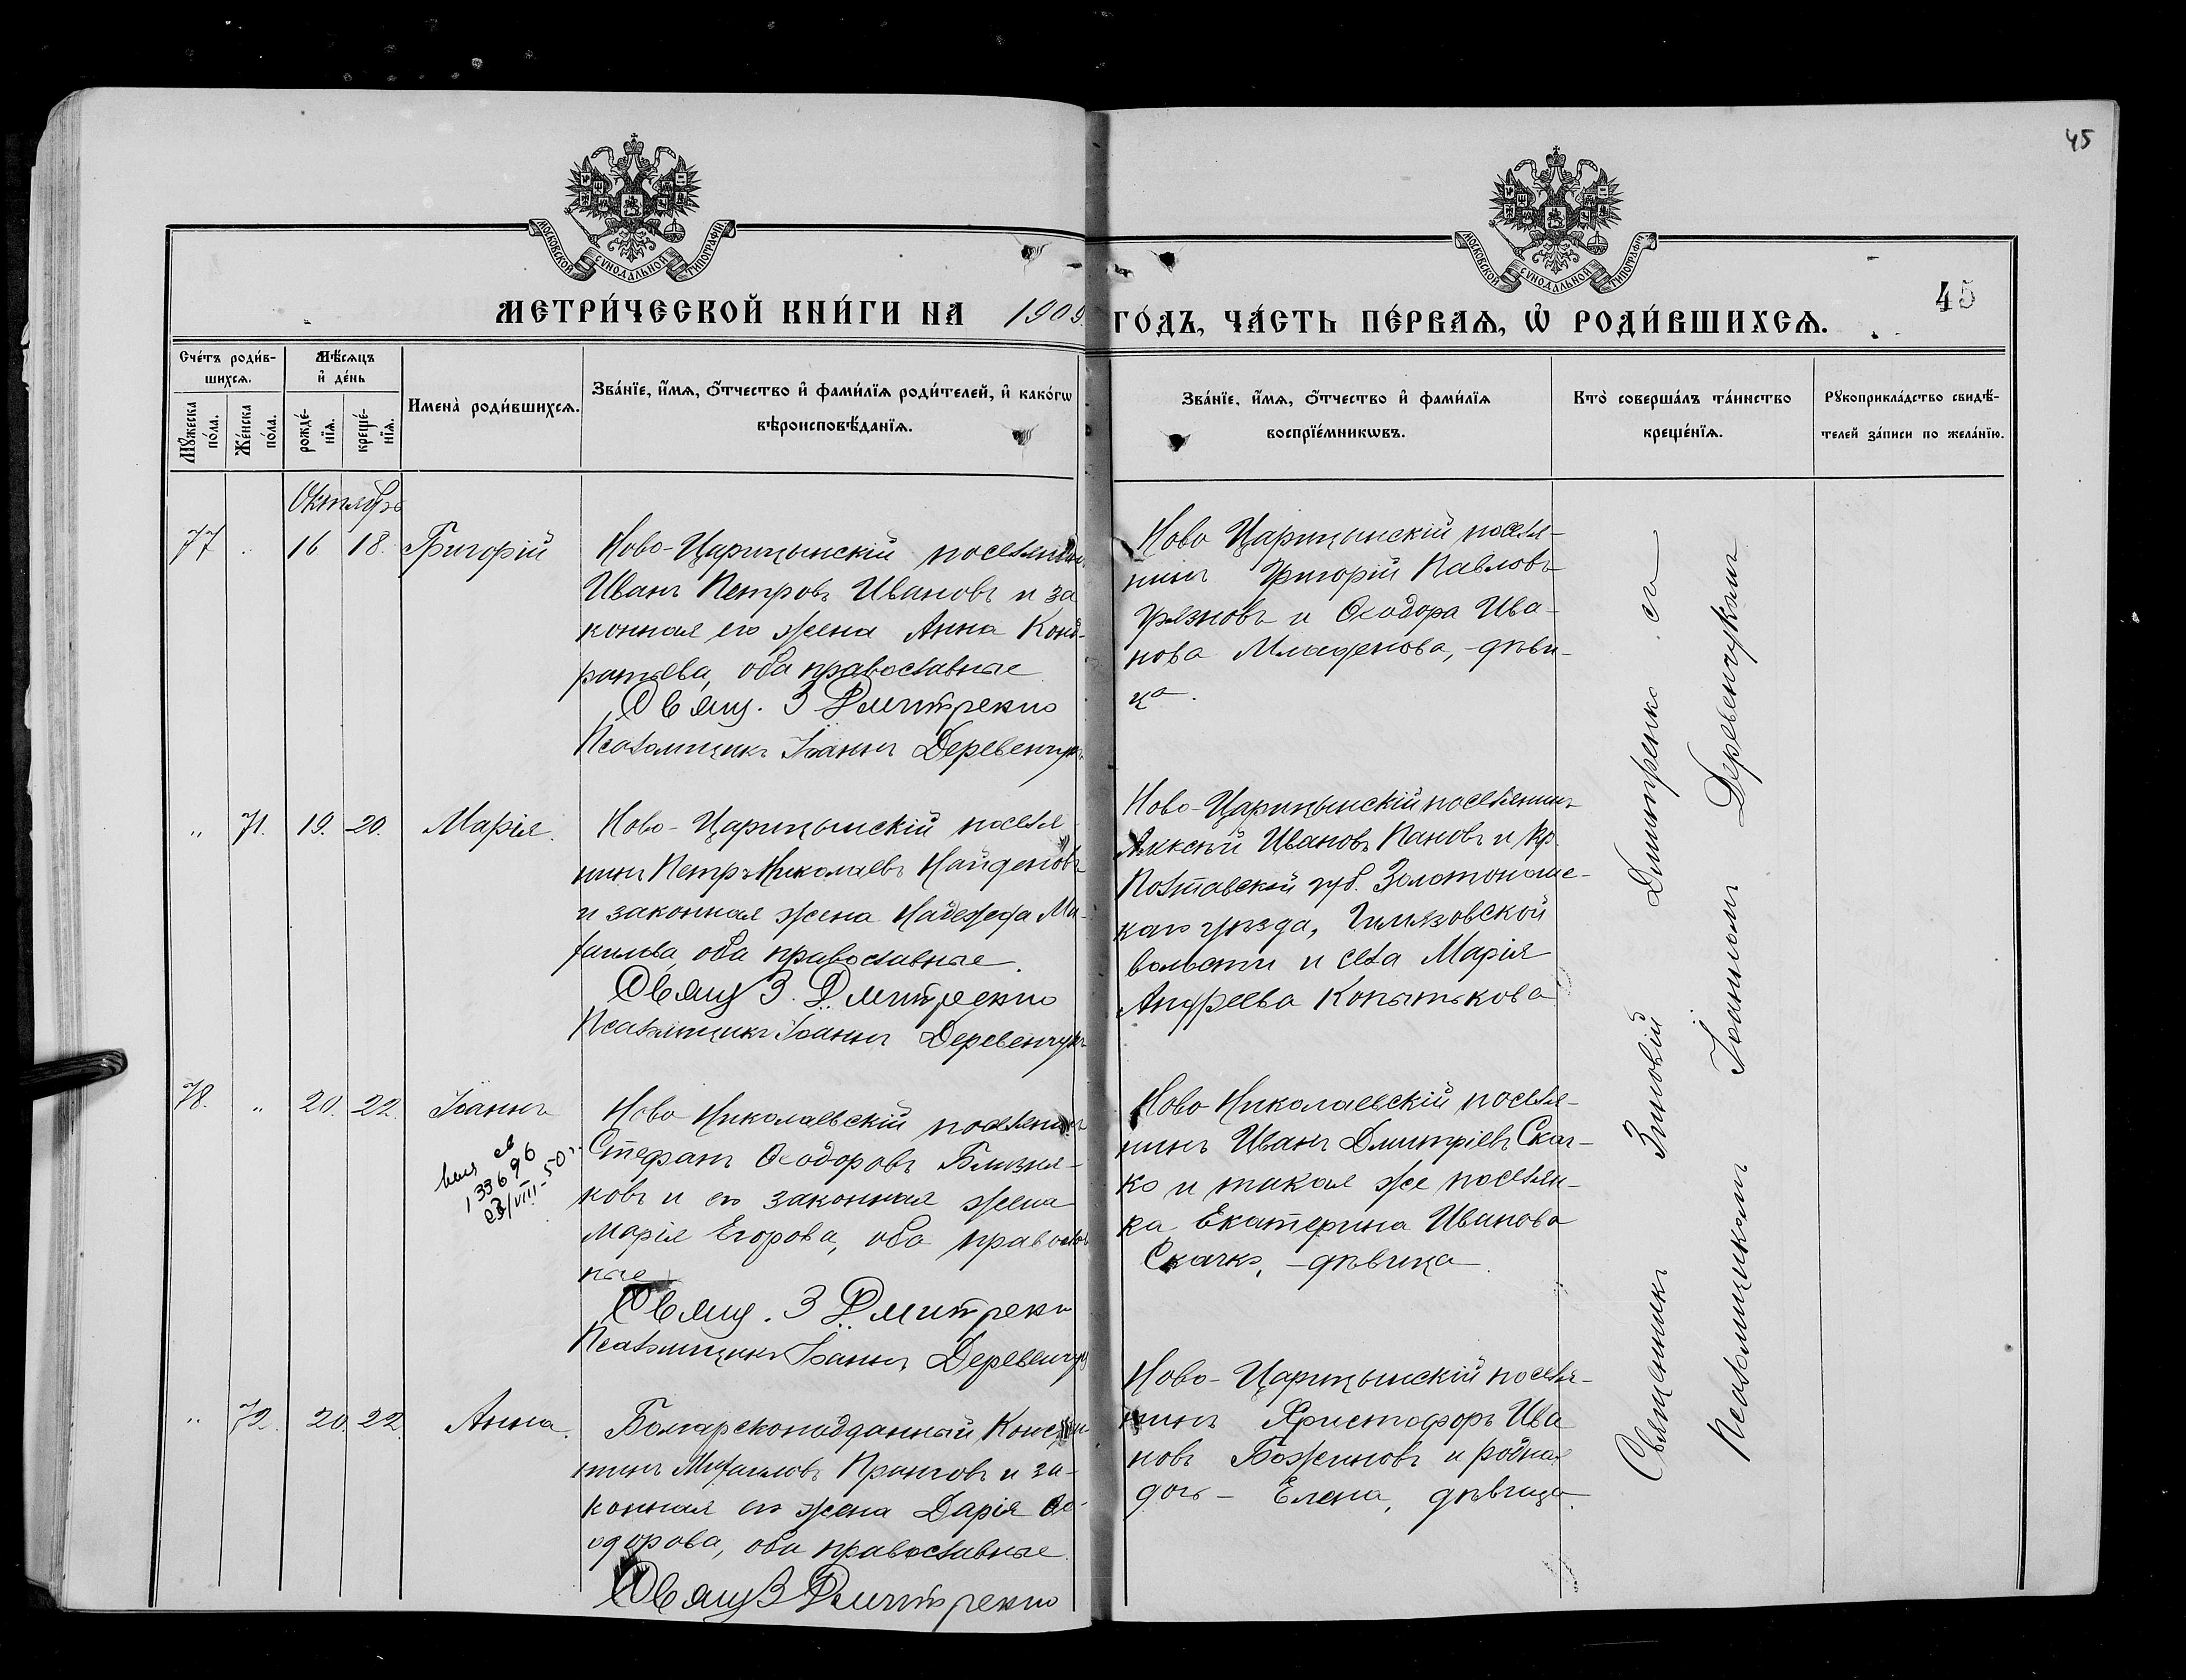 45
МОСКОВСКОЙ СѴНОДАЛЬНОЙ ТИПОГРАФІИ
МОСКОВСКОЙ СѴНОДАЛЬНОЙ ТИПОГРАФІИ
МЕТРИ́ЧЕСКОЙ КНИ́ГИ НА 1909 ГО́ДЪ, ЧА́СТЬ ПЕ́РВАѦ, Ѽ РОДИ́ВШИХСѦ.
45
Сче́тъ роди́в-
шихсѧ.
Мѣ́сѧцъ
и҆ де́нь
Мꙋ́жеска
по́ла.
Же́нска
по́ла.
рожде́-
нїѧ.
креще́-
нїѧ.
Имена̀ роди́вшихсѧ.
Зва́нїе, и҆́мѧ, ѻ҆́тчество и҆ фами́лїѧ роди́телей, и҆ како́гѡ
вѣроисповѣ́данїѧ.
Зва́нїе, и҆́мѧ, ѻ҆́тчество и҆ фами́лїѧ
воспрїе́мникѡвъ.
Кто̀ соверша́лъ та́инство
креще́нїѧ.
Рꙋкоприкла́дство свидѣ́-
телей за́писи по жела́нїю.
Октябрь
77 " 16 18. Григорій
Ново-Царицынскій поселянин
Иванъ Петровъ Ивановъ и за
конная его жена Анна Конд-
ратьева, оба православные
Свящ. З Дмитренко
Псаломщикъ Іоаннъ Деревенчукъ
Ново Царицынскій поселя-
нинъ Григорій Павловъ
Грязновъ и Ѳеодора Ива-
нова Младенова, -дѣви-
ца.
" 71. 19. 20. Марія.
Ново-Царицынскій поселя
нинъ Петръ Николаевъ Найденовъ
и законная жена Надежда Ми-
хаилова, оба православные.
Свящ З. Дмитренко
Псаломщикъ Іоаннъ Деревенчукъ
Ново-Царицынскій поселянинъ
Алексѣй Ивановъ Пановъ и кр.
Полтавской губ. Золотоношс-
каго уѣзда, Гильмязовской
волости и села Марія
Андреева Копытькова
78. " 20. 22. Іоаннъ
св
133696
23/VIII-50
Ново Николаевскій поселянинъ
Стефанъ Ѳеодоровъ Близня-
ковъ и его законная жена
Марія Егорова, оба православ
ные
Свящ. З Дмитренко
Псаломщикъ Іоаннъ Деревенчук
Ново Николаевскій поселя-
нинъ Иванъ Дмитріевъ Скач-
ко и такая же поселян-
ка Екатерина Иванова
Скачко, -дѣвица.
" 72. 20. 22. Анна.
Болгарскоподданный Констан
тинъ Михаиловъ Пранговъ и за-
конная его жена Дарія Ѳе-
одорова, оба православные.
Свящ З Дмитренко
Ново-Царицынскій поселя-
нинъ Христофоръ Ива
новъ Божиновъ и родная
дочь - Елена, дѣвица.
Священникъ Зиновій Димитренко съ
Псаломщикомъ Іоанномъ Деревенчукомъ